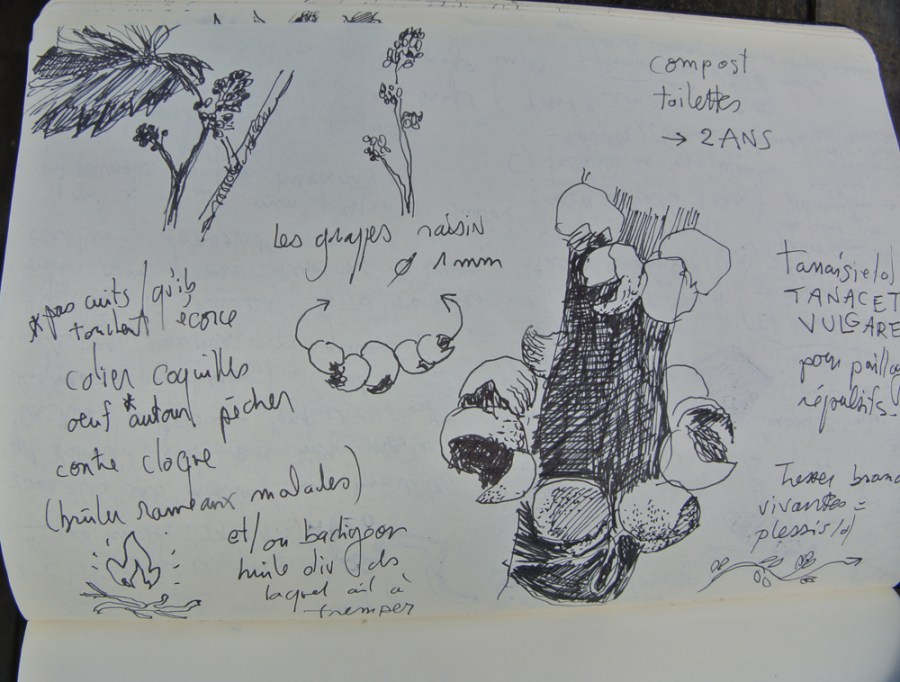 compost
toilettes
→ 2 ANS
les grappes raisin
ø 1 mm
*pas cuits / qu'ils
touchent / écorce
colier coquilles
oeuf * autour pêcher
contre cloque
(brûler rameaux malades)
et/ou badigeon
huile ds
laquel ail à
tremper
Tanaisie(s)
TANACET
VULGARE
pour paillag
répulsifs.
Tresser branc
vivantes =
plessis(s)